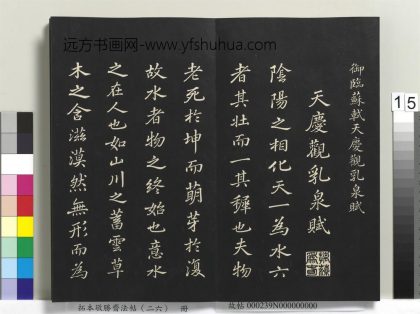 远方书画网-www.yfshuhua.com
御臨蘇軾天慶觀乳泉賦
天慶觀乳泉賦
陰陽之相化天一為水六
者其壯而一其穉也夫物
老死於坤而萌芽於復
故水者物之終始也意水
之在人也如山川之蓄雲草
木之含滋漠然無形而為
15
拓本敬勝齋法帖（二六） 冊
故帖 000239N000000000